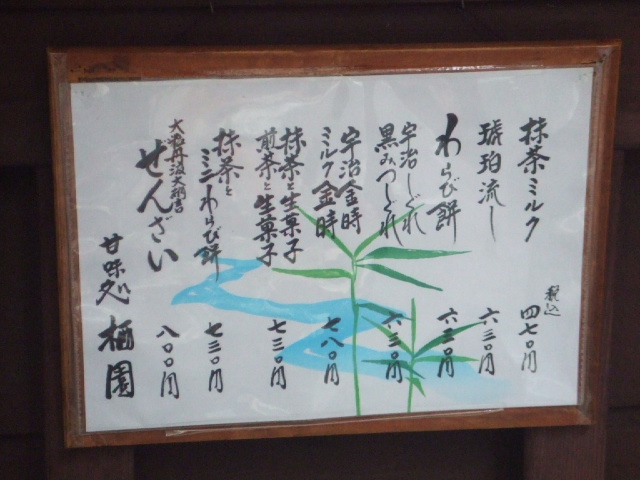 抹茶ミルク
税込
四七〇円
琥珀流し
六三〇円
わらび餅
六三〇円
宇治しぐれ
黒みつしぐれ
六三〇円
宇治金時
ミルク金時
七八〇円
抹茶と生菓子
煎茶と生菓子
七三〇円
抹茶と
ミニわらび餅
七三〇円
大粒丹波大納言
ぜんざい
八〇〇円
甘味処 栖園